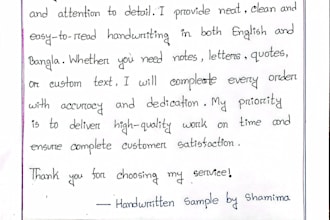 and attention to detail. I provide neat, clean and
easy-to-read handwriting in both English and
Bangla. Whether you need notes, letters, quotes,
or custom text, I will complete every order
with accuracy and dedication. My priority
is to deliver high-quality work on time and
ensure complete customer satisfaction.
Thank you for choosing my service!
— Handwritten Sample by Shamima